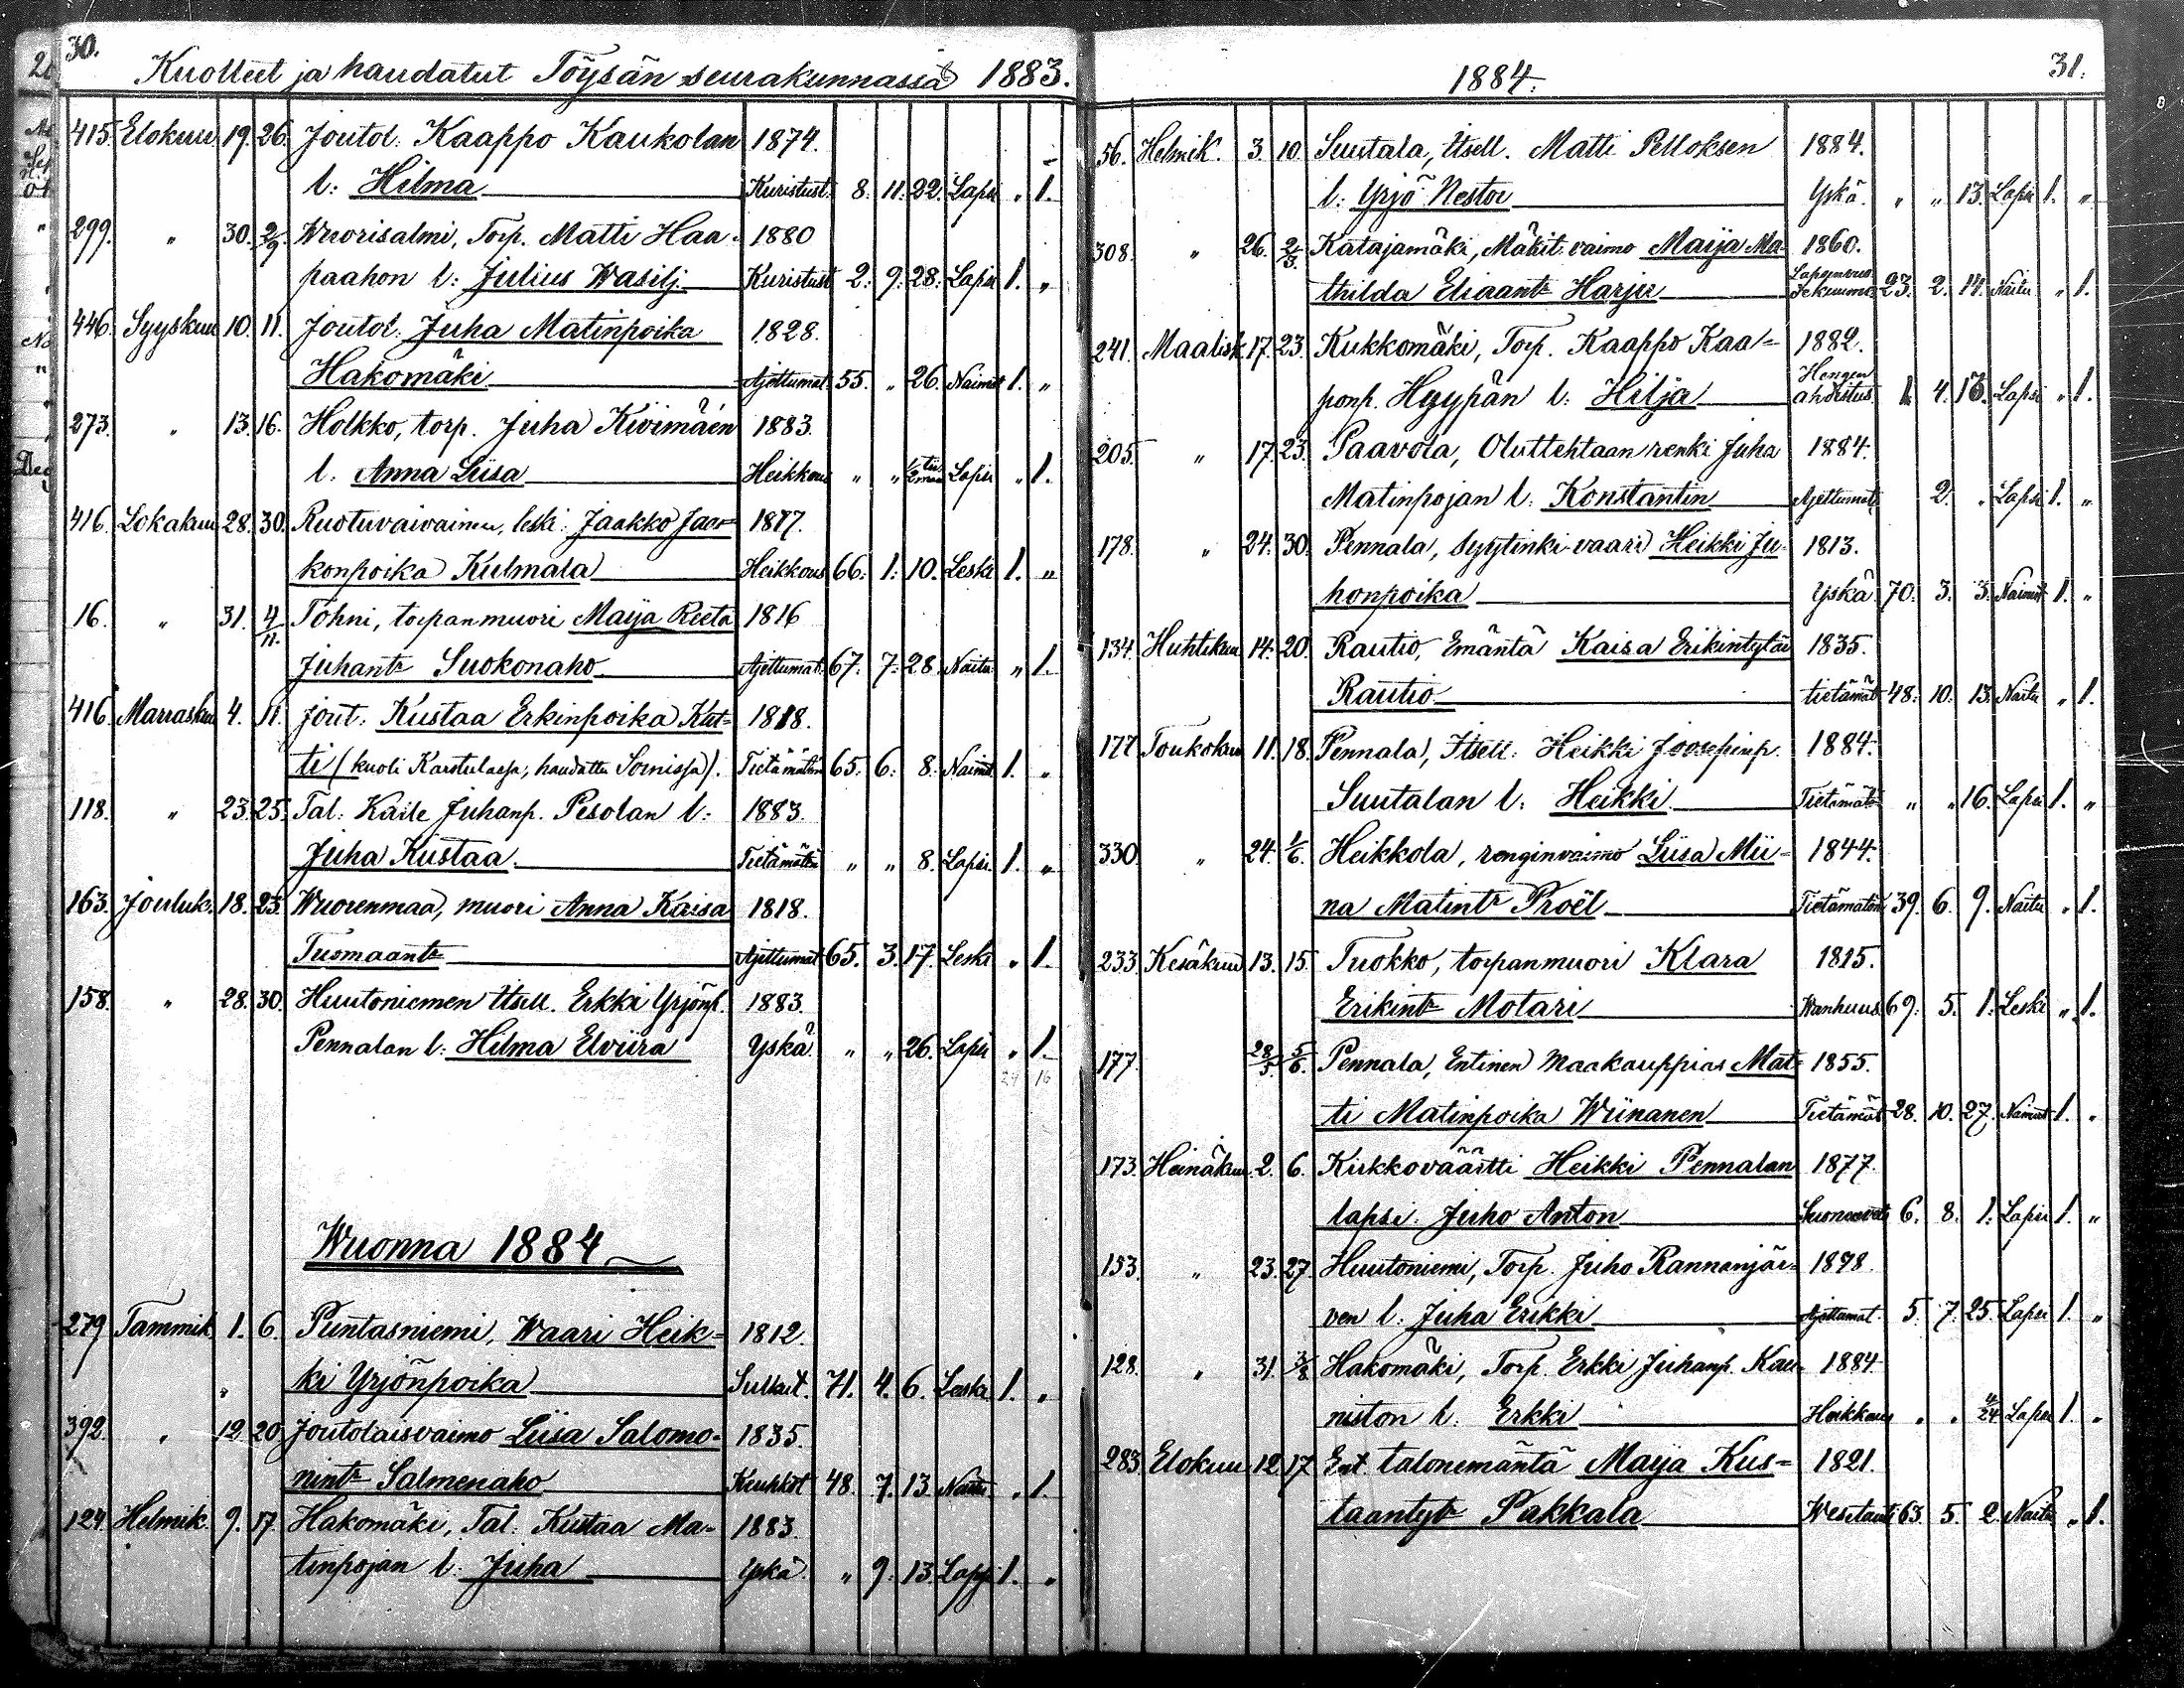 30.
Kuolleet ja haudatut Töysän seurakunnassa 1883.
415. Elokuu 19. 26. Joutol. Kaappo Kaukolan 1874.
l: Hilma Kuristust. 8. 11. 22. Lapsi " 1.
299. " 30. 2/9. Wuorisalmi, Torp. Matti Haa- 1880
paahon l: Julius Wasilj. Kuristust 2. 9. 28. Lapsi 1. "
446. Syyskuu 10. 11. Joutol. Juha Matinpoika 1828.
Hakomäki Ajettumat. 55. " 26. Naimist 1. "
273. " 13. 16. Holkko, torp. Juha Kivimäen 1883.
l. Anna Liisa Heikkous " " Lapsi " 1.
416. Lokakuu 28. 30. Ruotuvaivainen, leski: Jaakko Jaa- 1817.
konpoika Kulmala Heikkous 66. 1. 10. Leski 1. "
16. " 31. 4/11. Töhni, torpanmuori Maija Reeta 1816
Juhantr Suokonaho Ajettumat. 67. 7. 28. Naitu " 1.
416. Marraskuu 4. 11. Jout. Kustaa Erkinpoika Kut- 1818.
ti (kuoli Karstulassa, haudattu Soinissa). Tietämätön 65. 6. 8. Naimist. 1. "
118. " 23. 25. Tal: Kalle Juhanp. Pesolan l: 1883.
Juha Kustaa. Tietämätön " " 8. Lapsi. 1. "
163. Jouluk. 18. 23. Wuorenmaa, muori Anna Kaisa 1818.
Tuomaantr Ajettumat 65. 3. 17. Leski " 1.
158. " 28. 30. Huutoniemen Itsell. Erkki Yrjönp. 1883.
Pennalan l: Hilma Elviira Yskä. " " 26. Lapsi " 1.
24 16
Wuonna 1884
279 Tammik. 1. 6. Puntasniemi, Waari Heik- 1812.
" ki Yrjönpoika 71. 4. 6. Leski 1. "
392. " 12. 20. Joutolaisvaimo Liisa Salomo- 1835.
nintr Salmenaho Keuhkot 48. 7. 13. Naitu " 1.
124 Helmik. 9. 17. Hakomäki, Tal. Kustaa Ma- 1883.
tinpojan l: Juha Yskä " 9. 13. Lapsi 1. "
31.
1884.
56. Helmik. 3. 10. Suutala, Itsell. Matti Pelloksen 1884.
l: Yrjö Nestor Yskä. " " 13. Lapsi 1. "
308. " 26. 2/3. Katajamäki, Mäkit. vaimo Maija Ma- 1860.
thilda Eliaantr Harju 23. 2. 14. Naitu " 1.
241. Maalisk. 17. 23. Kukkomäki, Torp. Kaappo Kaa- 1882.
ponp. Hyypän l: Hilja Hengen ahdistus 1. 4. 13. Lapsi " 1.
205. " 17. 23. Paavola, Oluttehtaan renki Juha 1884.
Matinpojan l: Konstantin Ajettumat 2. " Lapsi 1. "
178. " 24. 30. Pennala, Syytinki-vaari Heikki Ju- 1813.
honpoika Yskä 70. 3. 3. Naimist 1. "
134. Huhtikuu 14. 20. Rautio, Emäntä Kaisa Erikintytär 1835.
Rautio tietämät. 48. 10. 13. Naitu " 1.
177 Toukokuu 11. 18. Pennala, Itsell: Heikki Joosepinp. 1884.
Suutalan l: Heikki. Tietämät. " " 16. Lapsi 1. "
330. " 24. 1/6. Heikkola, renginvaimo Liisa Mii- 1844.
na Matintr Proël Tietämätön 39. 6. 9. Naitu " 1.
233. Kesäkuu 13. 15. Tuokko, torpanmuori Klara 1815.
Erikintr Motari Wanhuus. 69. 5. 1. Leski " 1.
177. 28/5. 5/6. Pennala, Entinen Maakauppias Mat- 1855.
ti Matinpoika Wiinanen Tietämät 28. 10. 27. Naimist 1. "
173. Heinäkuu 2. 6. Kirkkoväärtti Heikki Pennalan 1877.
lapsi. Juho Anton 6. 8. 1. Lapsi 1. "
153. " 23. 27. Huutoniemi, Torp. Juho Rannanjär- 1878.
ven l. Juha Erikki Ajettumat. 5. 7. 25. Lapsi 1. "
128. " 31. 3/8 Hakomäki, Torp. Erkki Juhanp. Kau- 1884
niston l. Erkki Heikkous " " 4/24 Lapsi 1. "
283. Elokuu 12. 17. Ent. talonemäntä Maija Kus- 1821.
taantytr Pakkala Wesitauti 63. 5. 2. Naitu " 1.